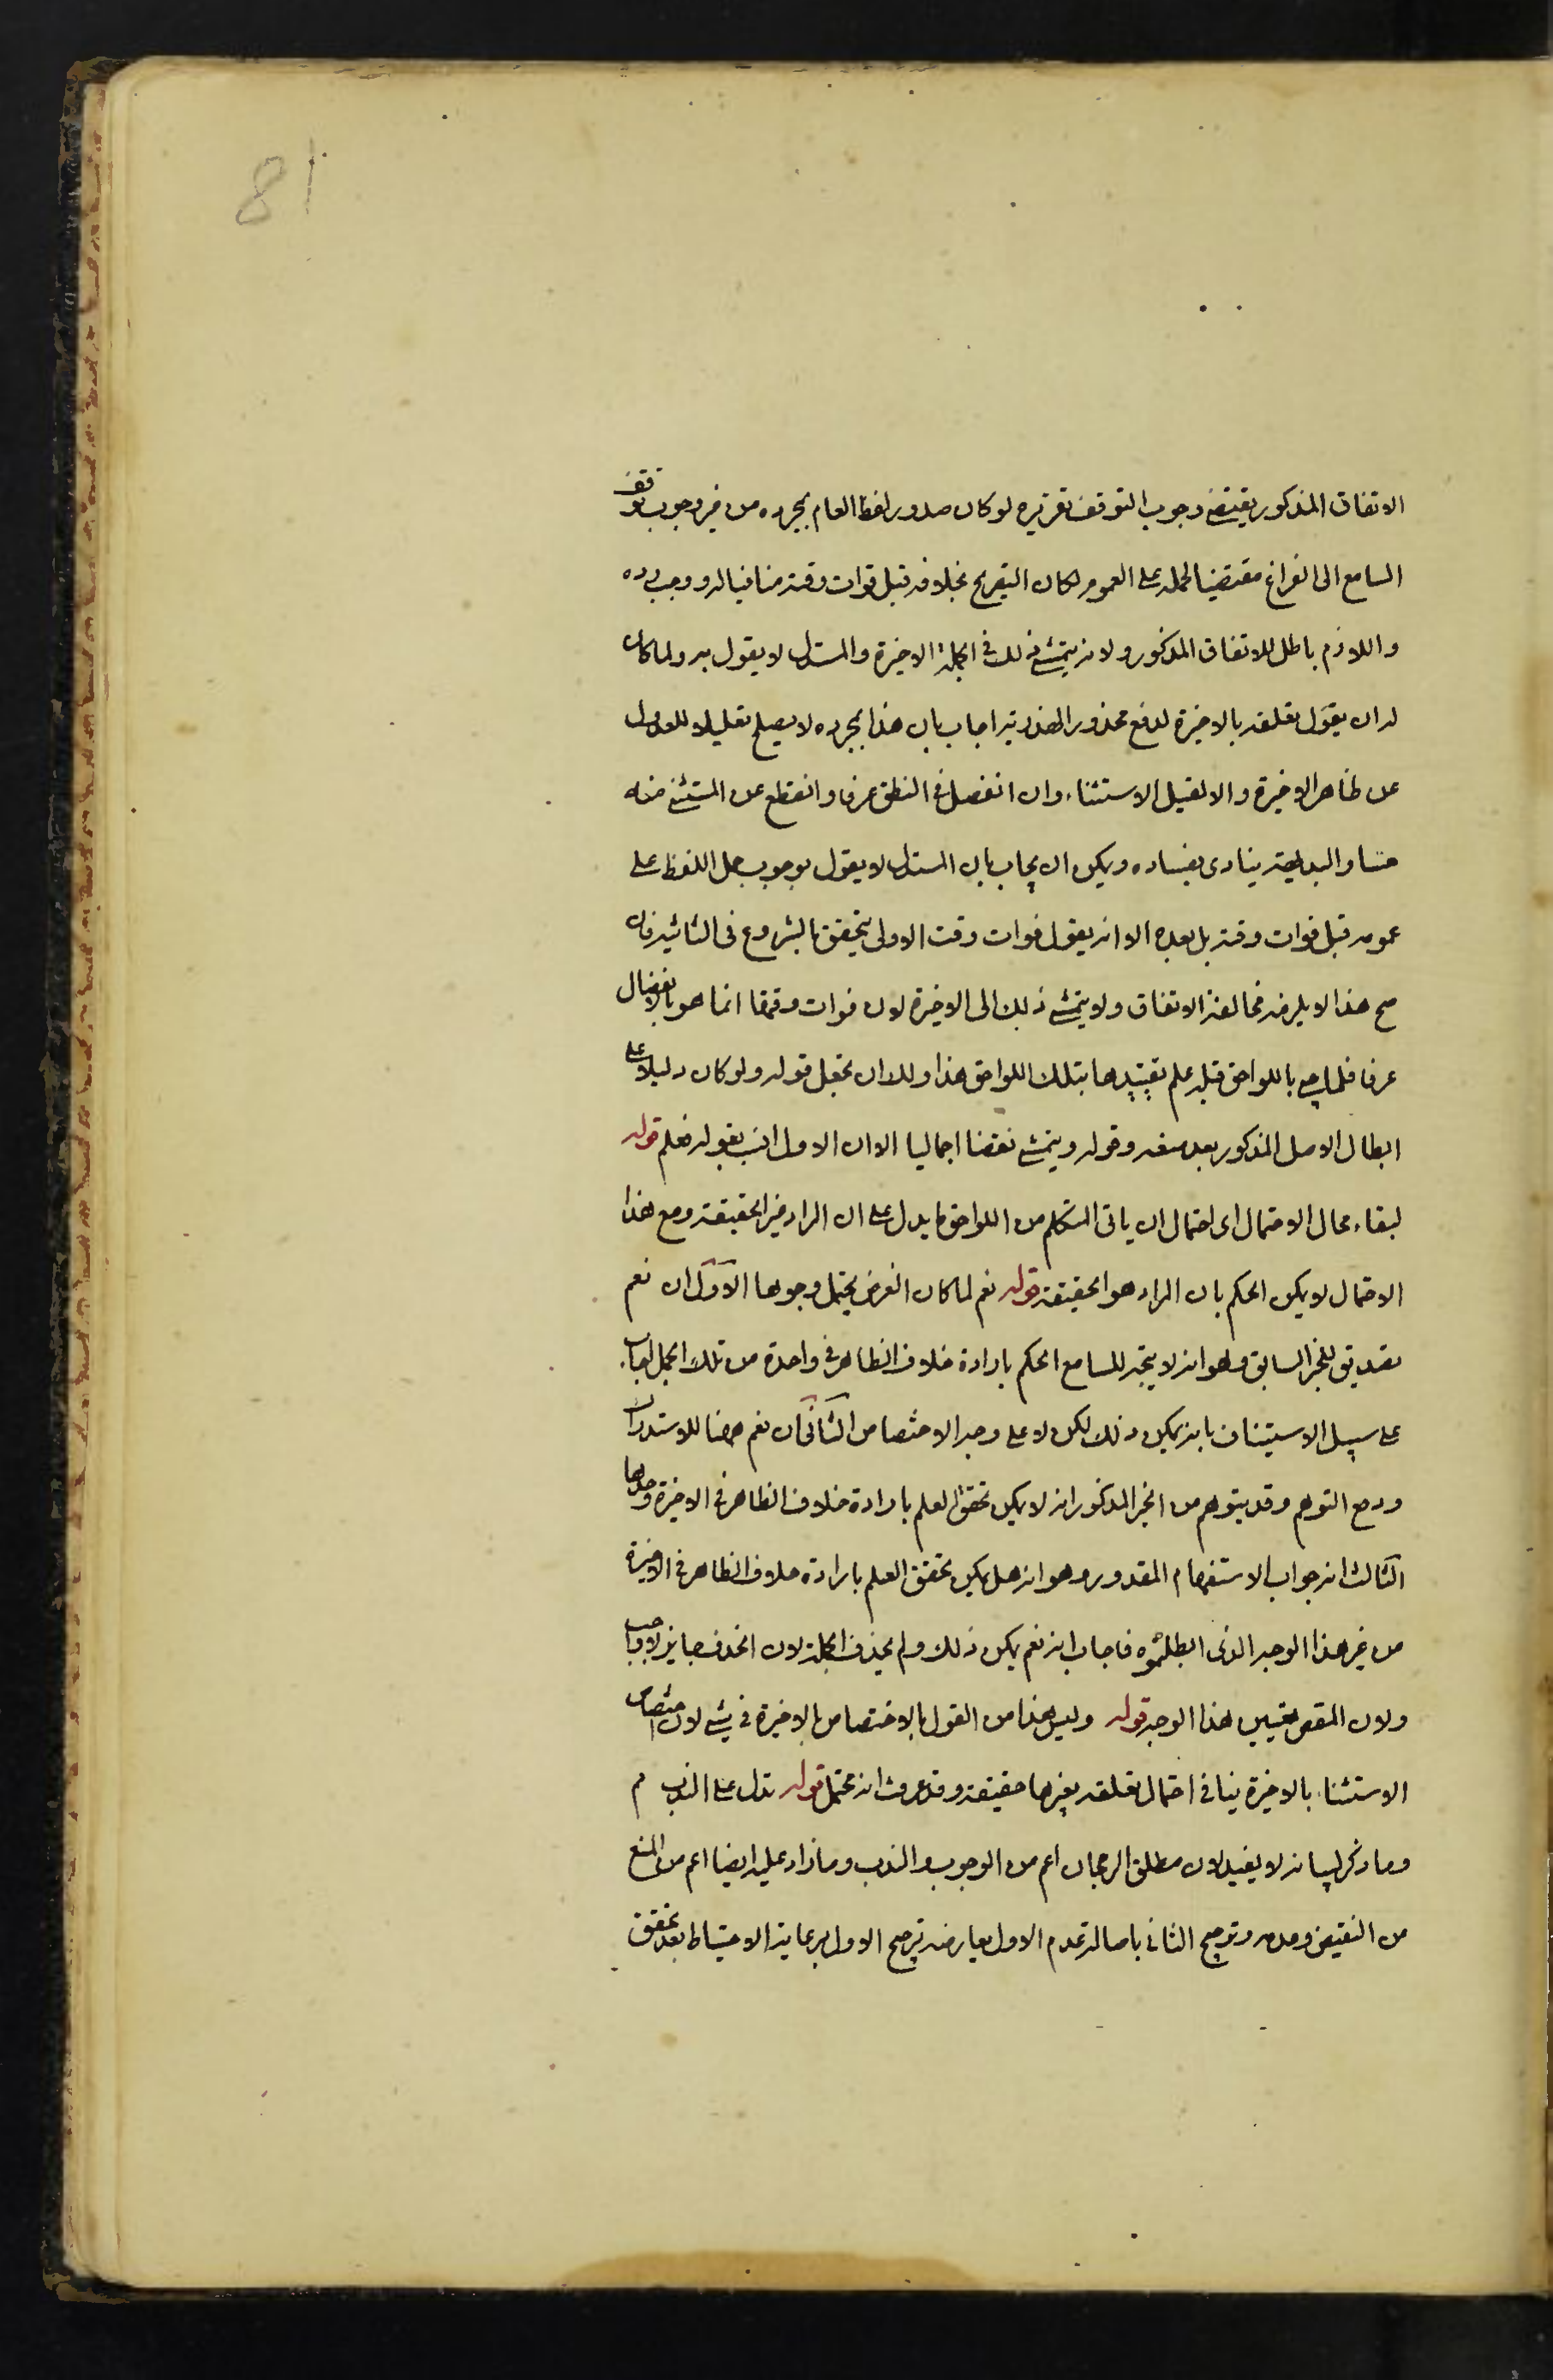 81
الاتفاق المذكور يقتضى وجوب التوقف تقريره لو كان صدور لفظ العام بمجرده من غير وجوب توقف
السامع الى الفراغ مقتضيا لحمله على العموم لكان التصريح بخلافه قبل فوات وقته منافيا له ووجب رده
واللازم باطل للاتفاق المذكور ولانه يتمشى ذلك فى الجملة الاخيرة والمستدل لا يقول به ولما كان
له ان يقول تعلقه بالاخيرة لدفع محذور الهذرية اجاب بان هذا بمجرده لا يصلح تعليلا للعدول
عن ظاهر الاخيرة والا لقبل الاستثناء وان انفصل فى النطق عرفا وانقطع عن المستثنى منه
حسا والبديهة ينادى بفساده ويمكن ان يجاب بان المستدل لا يقول بوجوب حمل اللفظ على
عمومه قبل فوات وقته بل بعده الا انه يقول فوات وقت الاولى يتحقق بالشروع فى الثانية فان
صح هذا لا يلزمه مخالفة الاتفاق ولا يتمشى ذلك الى الاخيرة لان فوات وقتها انما هو بالانفصال
عرفا فلما جىء باللواحق قبله علم تقييدها بتلك اللواحق هذا ولك ان تجعل قوله ولو كان دليلا على
ابطال الاصل المذكور بعد منعه وقوله ويتمشى نقضا اجماليا الا ان الاول انسب بقوله فعلم قوله
لبقاء مجال الاحتمال اى احتمال ان ياتى المتكلم من اللواحق ما يدل على ان المراد غير الحقيقة ومع هذا
الاحتمال لا يمكن الحكم بان المراد هو الحقيقة قوله نعم لما كان الغرض يحتمل وجوها الاول ان نعم
تصديق للخبر السابق وهو انه لا يتجه للسامع الحكم بارادة خلاف الظاهر فى واحدة من تلك الجمل اجاب
على سبيل الاستيناف بانه يمكن ذلك لكن لا على وجه الاختصاص الثانى ان نعم ههنا للاستدراك
ودفع التوهم وقد يتوهم من الخبر المذكور انه لا يمكن تحقق العلم بارادة خلاف الظاهر فى الاخيرة وحدها
الثالث انه جواب الاستفهام المقدور وهو انه هل يمكن تحقق العلم بارادة خلاف الظاهر فى الاخيرة
من غير هذا الوجه الذى ابطلتموه فاجاب انه نعم يمكن ذلك ولم يحذف الجملة لان الحذف جايز لا واجب
ولان المقص تعيين هذا الوجه قوله وليس هذا من القول بالاختصاص بالاخيرة فى شىء لان اختصاص
الاستثناء بالاخيرة ينافى احتمال تعلقه بغيرها حقيقة وقد عرفت انه محتمل قوله تدل على الندب م
وما ذكر لبيانه لا يفيد لان مطلق الرجحان اعم من الوجوب والندب وما زاد عليه ايضا اعم من المنع
من النقيض وعدمه وترجيح الثانى باصالة عدم الاول يعارضه ترجيح الاول برعاية الاحتياط بعد تحقق